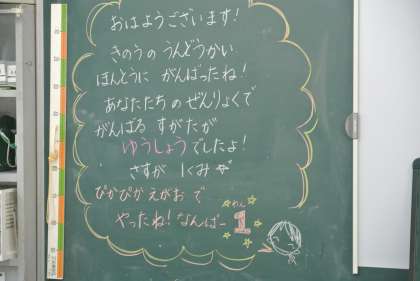 おはようございます!
きのうの うんどうかい
ほんとうに がんばったね!
あなたたちの ぜんりょくで
がんばる すがたが
ゆうしょうでしたよ!
さすが 1くみ
ぴかぴか えがお で
わん
やったね! なんばー 1